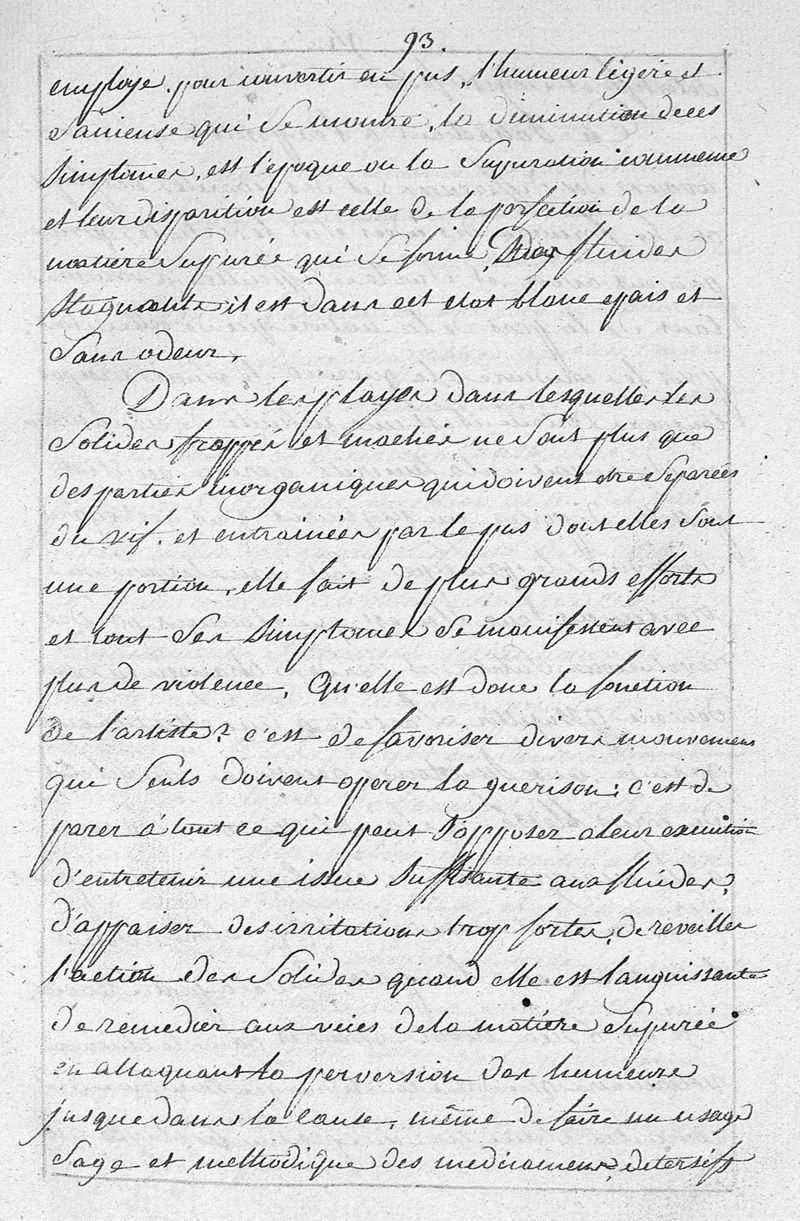 93.
employe. pour convertir en pus, l'humeur legere et
sanieuse qui se montre, la diminution de ces
simptomes, est l'epoque ou la supuration commence
et leur disparition est celle de la perfection de la
matiere supurée qui se forme, des fluides
stagnants il est dans cet etat blanc epais et
sans odeur.
Dans les playes dans lesquelles les
solides frappés et machés ne sont plus que
des parties inorganiques qui doivent etre separées
du vif. et entrainées par le pus dont elles sont
une portion, elle fait de plus grands efforts
et tout ses simptomes se manifestent avec
plus de violence, qu'elle est donc la fonction
de l'artiste? c'est de favoriser divers mouvemens
qui seuls doivent operer la guerison; c'est de
parer à tout ce qui peut s'opposer a leur execution
d'entretenir une issue suffisante aux fluides,
d'appaiser des irritations trop fortes, de reveiller
l'action des solides quand elle est languissante
de remedier aux vices de la matiere supurée
en attaquant la perversion des humeurs
jusque dans la cause, même de faire un usage
sage et methodique des medicamens, detersifs